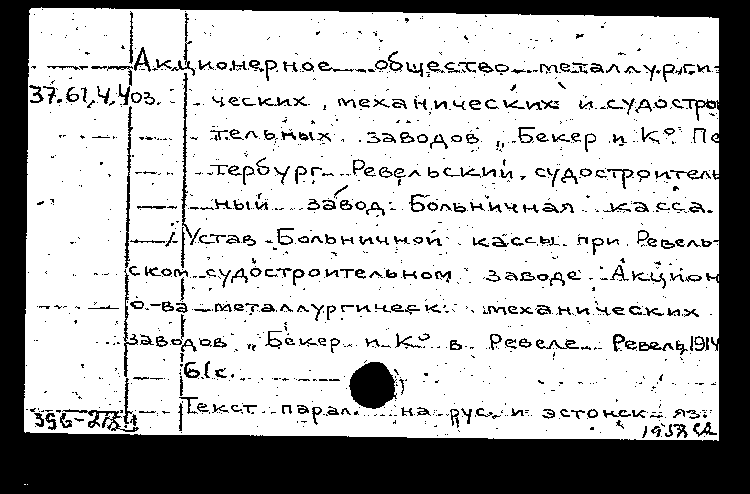 Акционерное общество металлурги-
37.61.4.403. ческих, механических и судострои
тельных заводов „Бекер и К° Пе
тербург. Ревельский судостроитель
ный завод. Больничная касса.
Устав Больничной кассы при Ревель-
ском судостроительном заводе Акцион
о-ва металлургическ. механических
заводов „Бекер и К° в Ревеле. Ревель, 1914
61с.
Текст парал. на рус. и эстонск. яз.